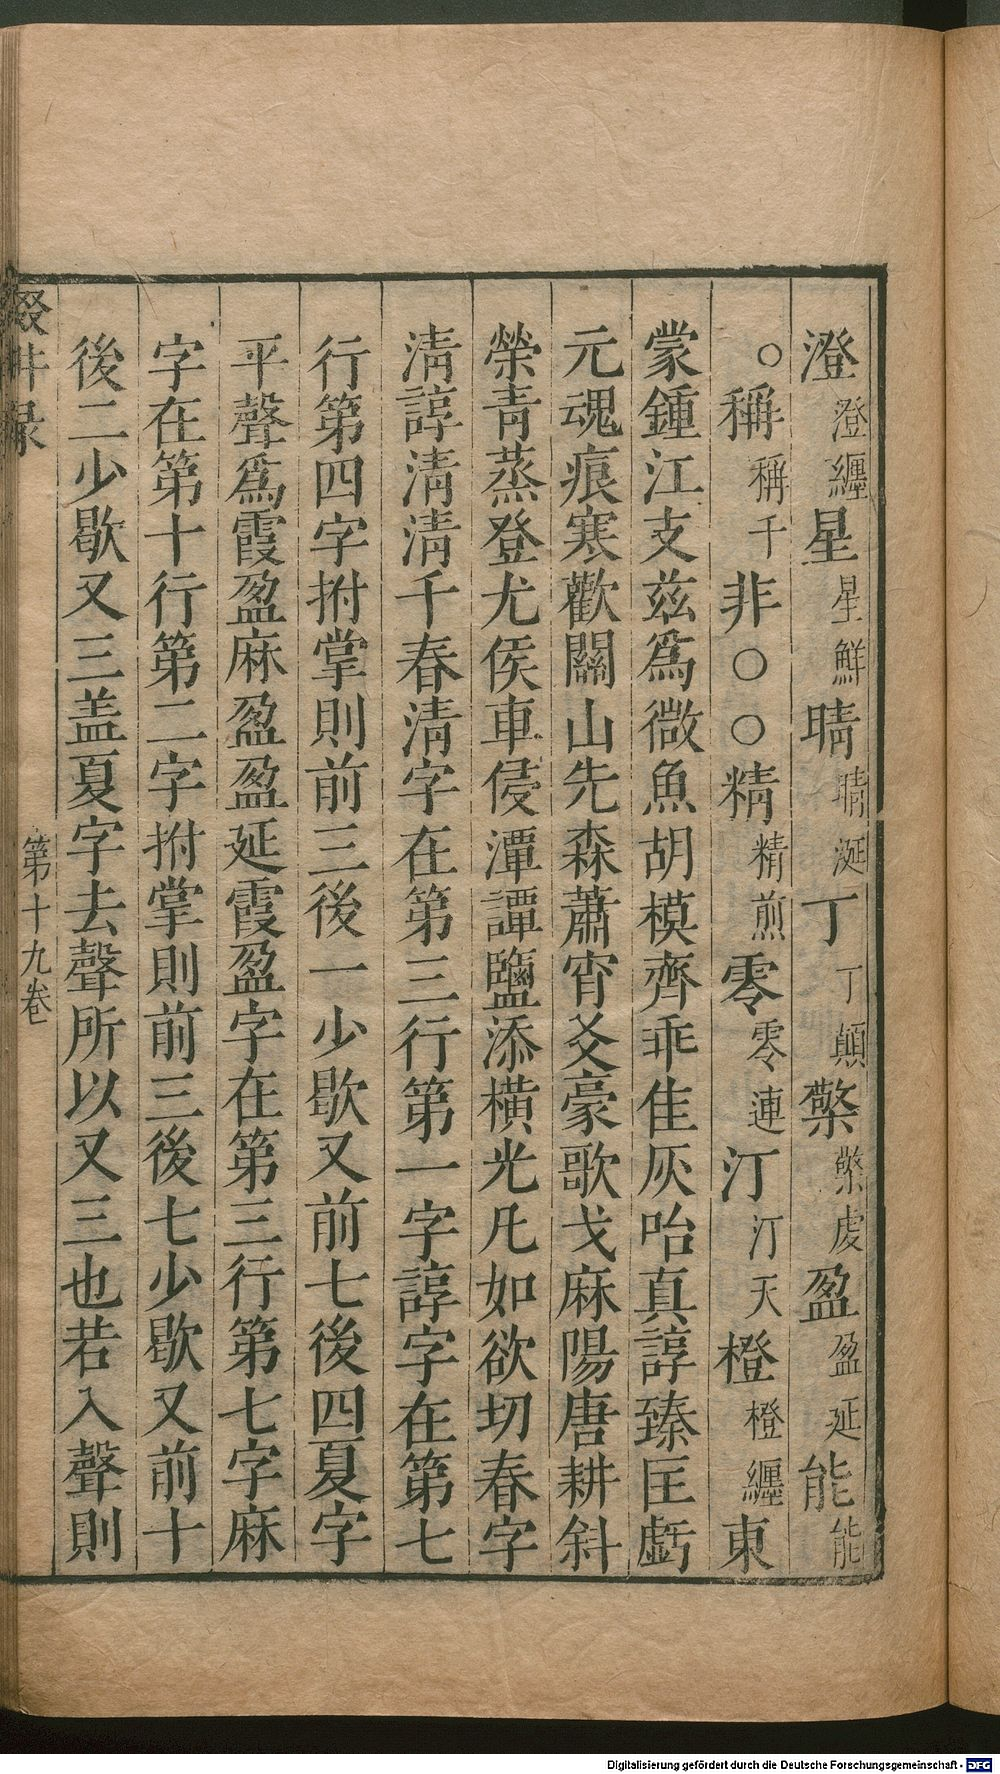 澄澄纏星星鮮晴晴涎丁丁顛檠檠虔盈盈延能能
○稱稱千非○○精精煎零零連汀汀天橙橙纏東
蒙鍾江支茲爲微魚胡模齊乖佳灰咍真諄臻匡虧
元魂痕寒歡關山先森蕭宵爻豪歌戈麻陽唐耕斜
榮青蒸登尤侯車侵潭譚鹽添橫光凡如欲切春字
清諄清清千春清字在第三行第一字諄字在第七
行第四字拊掌則前三後一少歇又前七後四夏字
平聲爲霞盈麻盈盈延霞盈字在第三行第七字麻
字在第十行第二字拊掌則前三後七少歇又前十
後二少歇又三盖夏字去聲所以又三也若入聲則
輟畊录 第十九卷
Digitalisierung gefördert durch die Deutsche Forschungsgemeinschaft - DFG